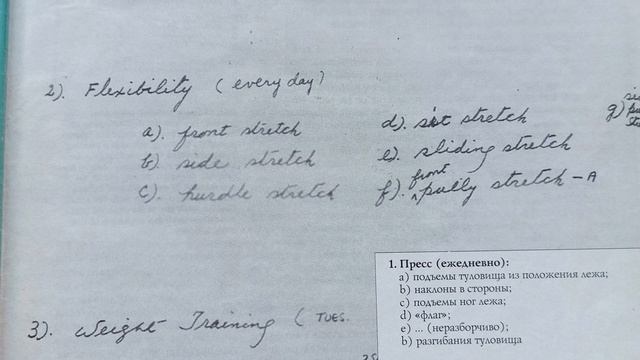 2). Flexibility (every day)
a). front stretch
b). side stretch
c). hurdle stretch
d). sit stretch
e). sliding stretch
f). front pully stretch - A
g)
3). Weight Training (TUES.
1. Пресс (ежедневно):
a) подъемы туловища из положения лежа;
b) наклоны в стороны;
c) подъемы ног лежа;
d) «флаг»;
e) ... (неразборчиво);
b) разгибания туловища